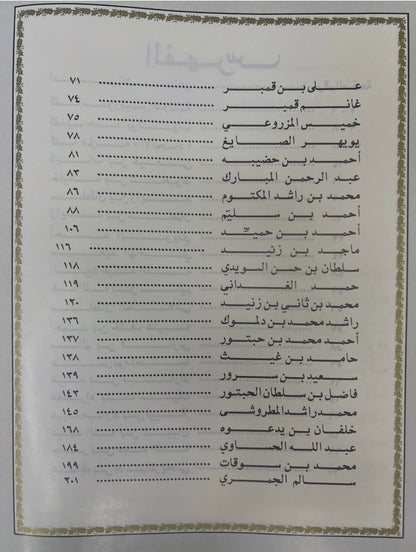 علي بن قمبر ........ ٧١
غانم قمبر ........ ٧٤
خميس المزروعي ........ ٧٥
يويهر الصايغ ........ ٧٨
أحمد بن حضيبه ........ ٨١
عبد الرحمن المبارك ........ ٨٣
محمد بن راشد المكتوم ........ ٨٦
أحمد بن سليّم ........ ٨٨
أحمد بن حميّد ........ ١٠٦
ماجد بن زنيد ........ ١١٦
سلطان بن حسن السويدي ........ ١١٨
حميد الغداني ........ ١١٩
محمد بن ثاني بن زنيد ........ ١٢٠
راشد محمد بن دلموك ........ ١٣٦
أحمد محمد بن حبتور ........ ١٣٧
حامد بن غيث ........ ١٣٨
سعيد بن سرور ........ ١٣٩
فاضل بن سلطان الحبتور ........ ١٤٣
محمد راشد المطروشى ........ ١٤٥
خلفان بن يدعوه ........ ١٦٨
عبد الله الحاوي ........ ١٨٤
محمد بن سوقات ........ ١٩٩
سالم الجمري ........ ٢٠١